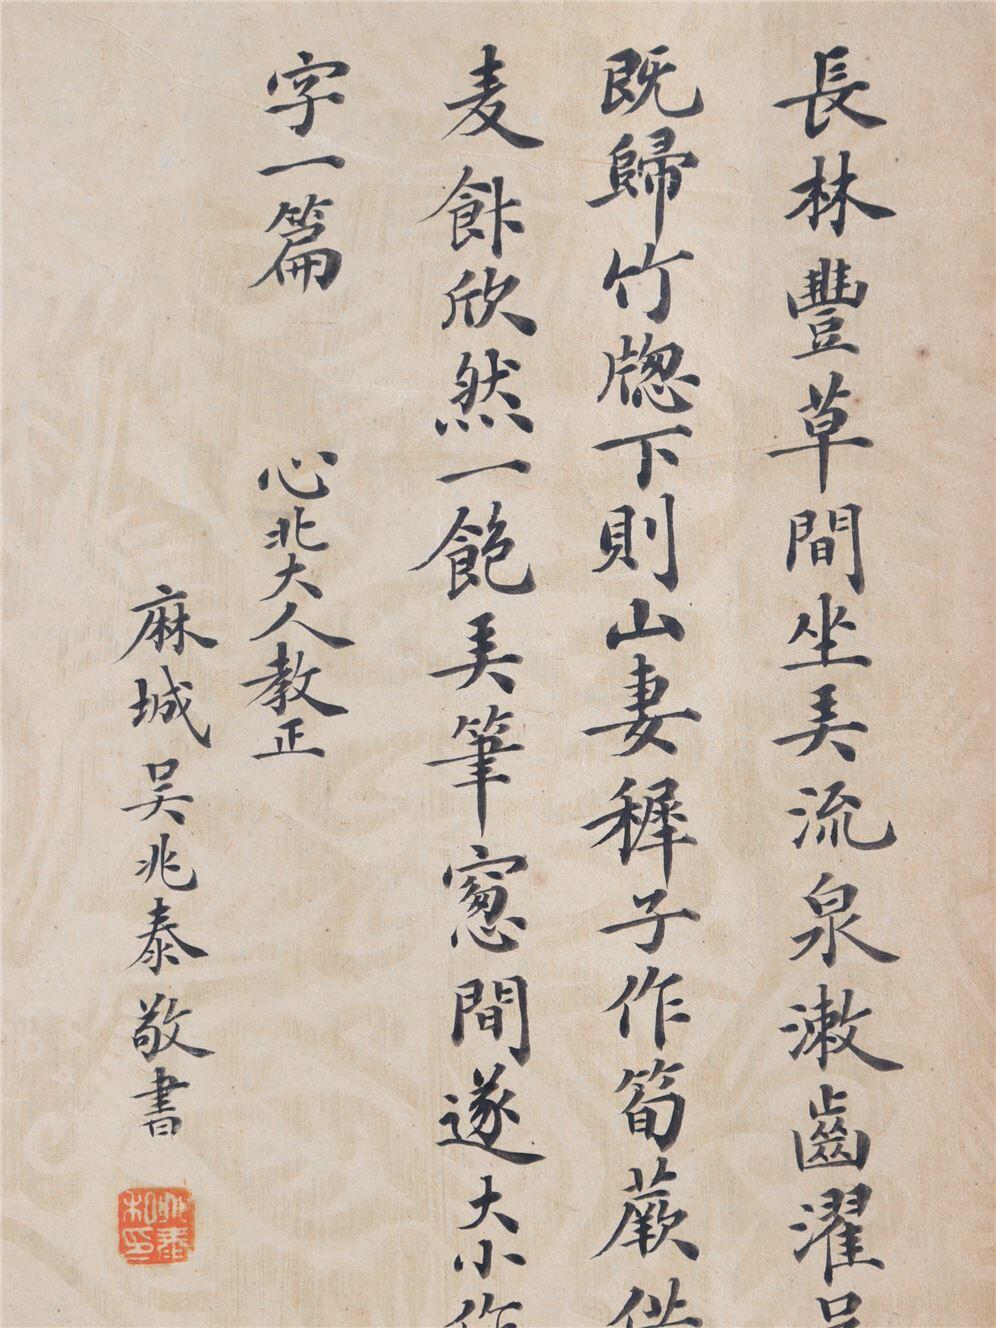 長林豐草間坐弄流泉漱齒濯足
既歸竹牕下則山妻穉子作筍蕨供
麦飰欣然一飽弄筆窻間遂大小作
字一篇
心北大人教正
麻城吴兆泰敬書
兆泰私印